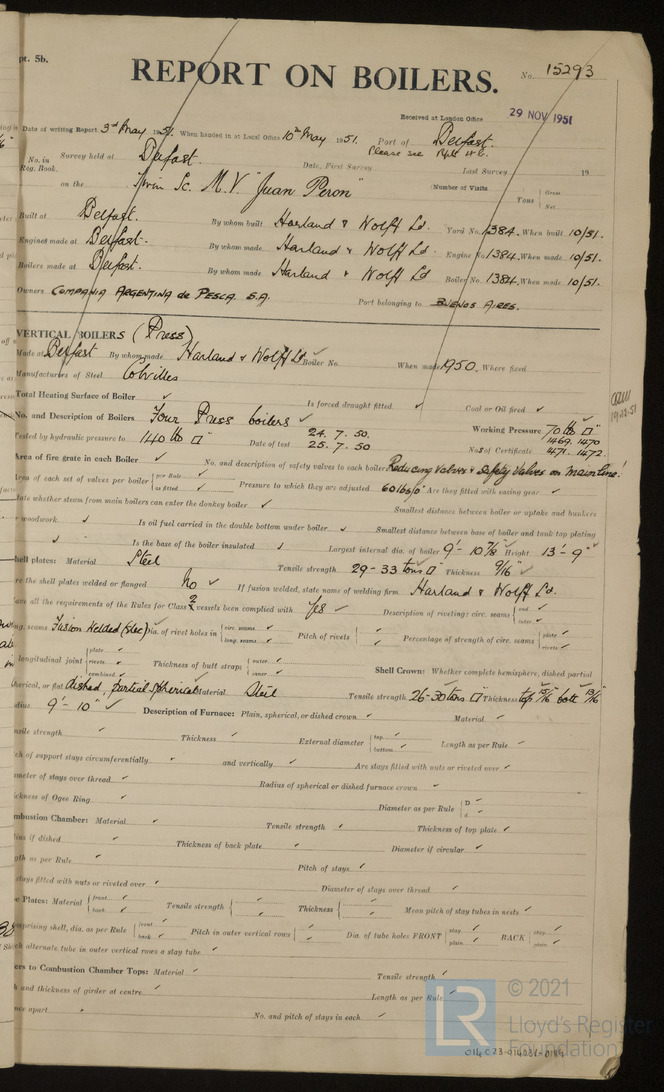 pt. 5b.
REPORT ON BOILERS.
No. 15293
Received at London Office 29 NOV 1951
Date of writing Report 3rd May 1951. When handed in at Local Office 10th May 1951. Port of Belfast.
Please see
No. in Reg. Book. Survey held at Belfast. Date, First Survey Last Survey 19
on the Twin Sc. M.V. "Juan Peron" (Number of Visits Tons Gross Net
Built at Belfast. By whom built Harland & Wolff Ld. Yard No. 1384. When built 10/51.
Engines made at Belfast. By whom made Harland & Wolff Ld. Engine No. 1384. When made 10/51.
Boilers made at Belfast. By whom made Harland & Wolff Ld Boiler No. 1384. When made 10/51.
Owners COMPANIA ARGENTINA de PESCA. S.A. Port belonging to BUENOS AIRES.
VERTICAL BOILERS (Press)
Made at Belfast By whom made Harland & Wolff Ld ✓ Boiler No. When made 1950. Where fixed
Manufacturers of Steel Colvilles
Total Heating Surface of Boiler ✓ Is forced draught fitted ✓ Coal or Oil fired ✓
No. and Description of Boilers Four Press boilers ✓ Working Pressure 70 lb □"
Tested by hydraulic pressure to 140 lb □" Date of test 24. 7. 50. 25. 7. 50 Nos of Certificate 1469. 1470 1471. 1472.
Area of fire grate in each Boiler ✓ No. and description of safety valves to each boiler Reducing Valves & Safety Valves on main line!
Area of each set of valves per boiler per Rule ✓ as fitted ✓ Pressure to which they are adjusted 60 lbs □" Are they fitted with easing gear ✓
ate whether steam from main boilers can enter the donkey boiler ✓ Smallest distance between boiler or uptake and bunkers
r woodwork ✓ Is oil fuel carried in the double bottom under boiler ✓ Smallest distance between base of boiler and tank top plating
✓ Is the base of the boiler insulated ✓ Largest internal dia. of boiler 9'- 10⅞" Height 13'- 9"
hell plates: Material Steel Tensile strength 29 - 33 tons □" Thickness 9/16" ✓
re the shell plates welded or flanged No ✓ If fusion welded, state name of welding firm Harland & Wolff Ld.
ave all the requirements of the Rules for Class 2 vessels been complied with Yes ✓ Description of riveting: circ. seams end ✓ inter. ✓
ng. seams Fusion Welded (elec) Dia. of rivet holes in circ. seams ✓ long. seams ✓ Pitch of rivets ✓ Percentage of strength of circ. seams plate ✓ rivets ✓
longitudinal joint plate ✓ rivets ✓ combined ✓ Thickness of butt straps outer ✓ inner ✓ Shell Crown: Whether complete hemisphere, dished partial
herical, or flat dished, partial spherical Material Steel Tensile strength 26-30 tons □" Thickness top 15/16" bott 13/16"
dius 9'- 10" ✓ Description of Furnace: Plain, spherical, or dished crown ✓ Material ✓
nsile strength ✓ Thickness ✓ External diameter top ✓ bottom ✓ Length as per Rule ✓
ch of support stays circumferentially ✓ and vertically ✓ Are stays fitted with nuts or riveted over ✓
ameter of stays over thread ✓ Radius of spherical or dished furnace crown ✓
ickness of Ogee Ring ✓ Diameter as per Rule D ✓ d ✓
mbustion Chamber: Material ✓ Tensile strength ✓ Thickness of top plate ✓
ius if dished ✓ Thickness of back plate ✓ Diameter if circular ✓
gth as per Rule ✓ Pitch of stays ✓
stays fitted with nuts or riveted over ✓ Diameter of stays over thread ✓
e Plates: Material front ✓ back ✓ Tensile strength ✓ Thickness ✓ Mean pitch of stay tubes in nests ✓
mprising shell, dia. as per Rule front ✓ back ✓ Pitch in outer vertical rows ✓ Dia. of tube holes FRONT stay ✓ plain ✓ BACK stay ✓ plain ✓
ch alternate tube in outer vertical rows a stay tube ✓
ers to Combustion Chamber Tops: Material ✓ Tensile strength ✓
h and thickness of girder at centre ✓ Length as per Rule ✓
nce apart No. and pitch of stays in each ✓
LR © 2021 Lloyd's Register Foundation